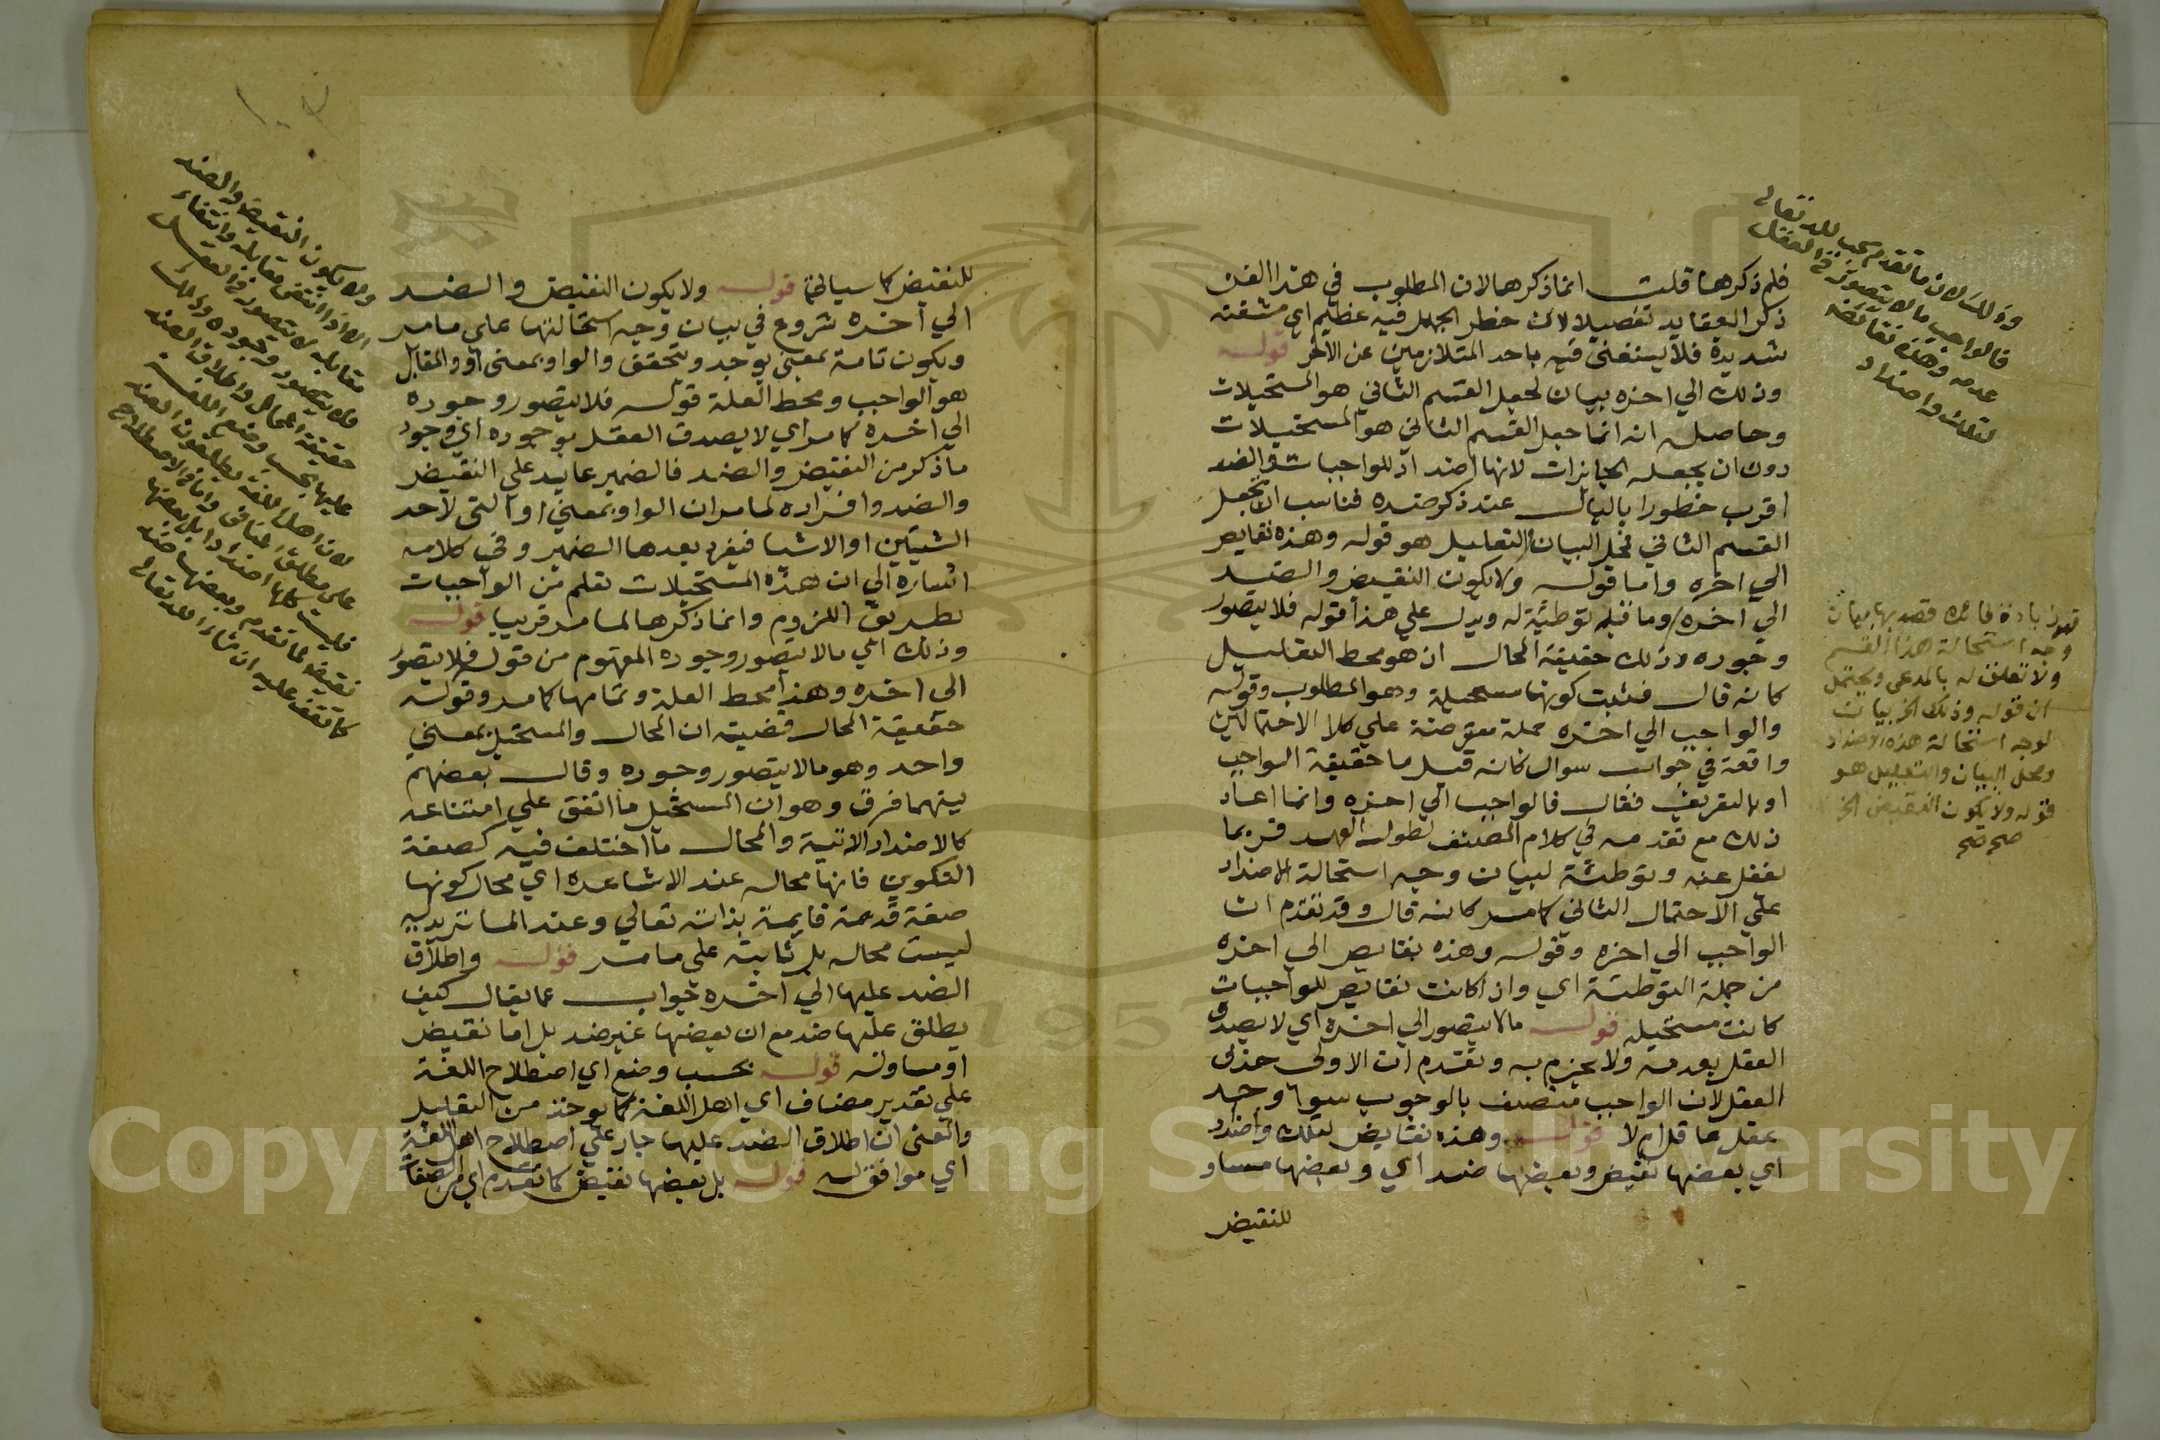 فلم ذكرها قلت انما ذكرها لان المطلوب في هذا الفن
ذكر العقايد تفصيلا لان خطر الجهل فيه عظيم اي مشقته
شديدة فلا يستغني فيه باحد المتلازمين عن الاخر قوله
وذلك الي اخره بيان لجعل القسم الثاني هو المستحيلات
وحاصله انه انما جعل القسم الثاني هو المستحيلات
دون ان يجعله الجايزات لانها اضداد للواجبات والضد
اقرب خطورا بالبال عند ذكر ضده فناسب ان يجعل
القسم الثاني فمحل البيان والتعليل هو قوله وهذه نقايض
الي اخره واما قوله ولا يكون النقيض والضد
الي اخره وما قبله توطئة له ويدل علي هذا قوله فلا يتصور
وجوده وذلك حقيقة المحال اذ هو محط التعليل
كانه قال فثبت كونها مستحيلة وهو المطلوب وقوله
والواجب الي اخره جملة معترضة علي كلا الاحتمالين
واقعة في جواب سوال كانه قيل ما حقيقة الواجب
او بالتفريع فقال فالواجب الي اخره وانما اعاد
ذلك مع تقدمه في كلام المصنف لطول العهد فربما
يغفل عنه وتوطئة لبيان وجه استحالة الاضداد
علي الاحتمال الثاني كامر كانه قال وقد تقدم ان
الواجب الي اخره وقوله وهذه نقايض الي اخره
من جملة التوطئة اي واذا كانت نقايض للواجبات
كانت مستحيله قوله ما لا يتصور الي اخره اي لا يصدق
العقل بعدمه ولا يجزم به وتقدم ان الاولى حذف
العقل لان الواجب متصف بالوجوب سوا وجد
عقل عاقل ام لا قوله وهذه نقايض لتلك واضداد
اي بعضها نقيض وبعضها ضد اي وبعضها مساو
للنقيض
وذلك لان ما تقدم يجب لله تعالى
فالواجب ما لا يتصور في العقل
عدمه وهذه نقائض
لتلك واضداد
وجه استحالة هذا القسم
ولا تعلق له بالمدعى ويحتمل
ان قوله وذلك الخ بيان
لوجه استحالة هذه الاضداد
ومحل البيان والتعليل هو
قوله ولا يكون النقيض الخ
صح صح
للنقيض كما سيأتي قوله ولا يكون النقيض والضد
الي اخره شروع في بيان وجه استحالتها علي مامر
ويكون تامة بمعنى يوجد ويتحقق والواو بمعنى او والمقابل
هو الواجب ومحط العلة قوله فلا يتصور وجوده
الي اخره كامر اي لا يصدق العقل بوجوده اي وجود
ما ذكر من النقيض والضد فالضمير عايد علي النقيض
والضد وافراده لمامر ان الواو بمعنى او التي لاحد
الشيئين او الاشيا فيفرد بعدها الضمير وفي كلامه
اشاره الي ان هذه المستحيلات تعلم من الواجبات
بطريق اللزوم وانما ذكرها لما مر قريبا قوله
وذلك اي ما لا يتصور وجوده المفهوم من قوله فلا يتصور
الي اخره وهذا محط العلة وتمامها كامر وقوله
حقيقة المحال قضيته ان المحال والمستحيل بمعني
واحد وهو ما لا يتصور وجوده وقال بعضهم
بينهما فرق وهو ان المستحيل ما اتفق علي امتناعه
كالاضداد الاتية والمحال ما اختلف فيه كصفة
التكوين فانها محاله عند الاشاعره اي محال كونها
صفة قديمة قايمة بذاته تعالي وعند الماتريديه
ليست محاله بل ثابتة علي مامر قوله واطلاق
الضد عليها الي اخره جواب عما يقال كيف
يطلق عليها ضد مع ان بعضها غير ضد بل اما نقيض
او مساو له قوله بحسب وضع اي اصطلاح اللغة
علي تقدير مضاف اي اهل اللغة كما يوخذ من التعليل
والمعنى ان اطلاق الضد عليها جار علي اصطلاح اهل اللغة
اي موافق له قوله بل بعضها نقيض كما تقدم اي من
ولا يكون النقيض والضد
الا اذا انتفى مقابله وانتفاء
مقابله لا يتصور في العقل
فلا يتصور وجوده وذلك
حقيقة المحال واطلاق الضد
عليها بحسب وضع اللغة
لان اهل اللغة يطلقون الضد
على مطلق المنافى واما في الاصطلاح
فليست كلها اضدادا بل بعضها
نقيض لما تقدم وبعضها ضد
كما تقف عليه ان شاء الله تعالى
١٠٢
Copyright © King Saud University
1957